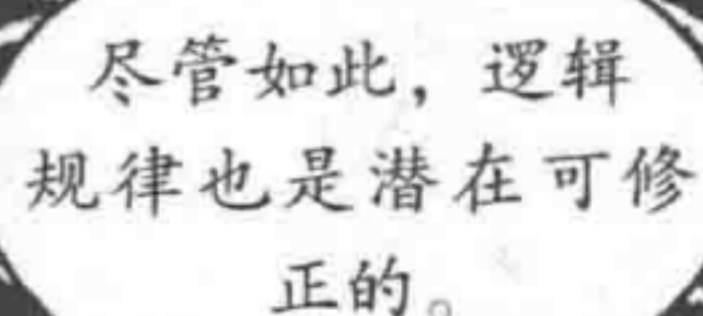 尽管如此，逻辑
规律也是潜在可修
正的。